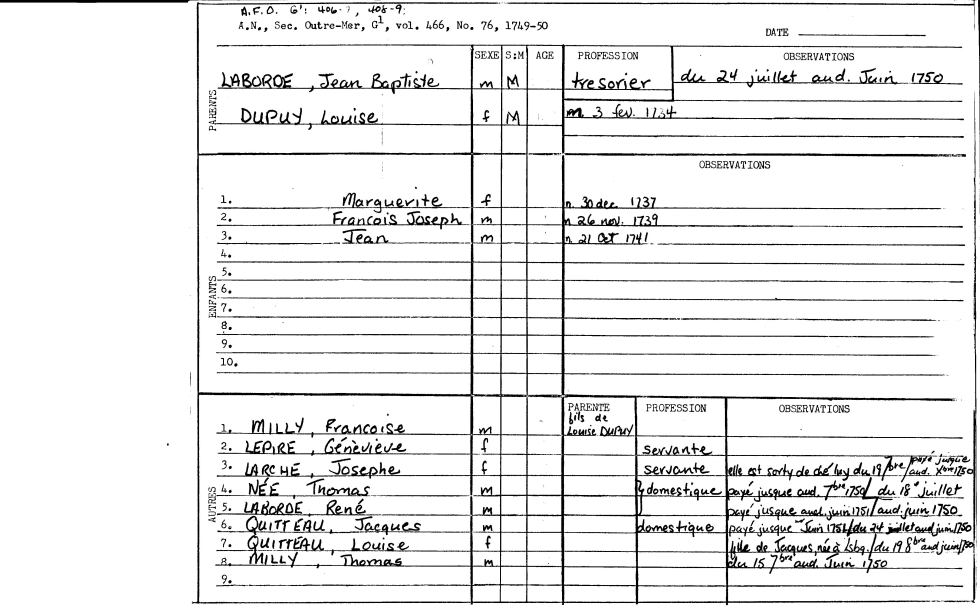 A.F.O. G¹: 406-7, 408-9;
A.N., Sec. Outre-Mer, G¹, vol. 466, No. 76, 1749-50
DATE
SEXE S:M AGE PROFESSION OBSERVATIONS
PARENTS
LABORDE, Jean Baptiste m M tresorier du 24 juillet aud. Juin 1750
DUPUY, Louise f M m. 3 fev. 1734
OBSERVATIONS
ENFANTS
1. Marguerite f n. 30 dec. 1737
2. Francois Joseph m n 26 nov. 1739
3. Jean m n. 21 Oct 1741
4.
5.
6.
7.
8.
9.
10.
PARENTE PROFESSION OBSERVATIONS
AUTRES
1. MILLY, Francoise m fils de Louise DUPUY
2. LEPIRE, Généviève f servante
3. LARCHE, Josephe f servante elle est sorty de ché luy du 19 7bre/payé jusque aud. Xbre 1750
4. NÉE, Thomas m domestique payé jusque aud. 7bre 1750/ du 18e juillet
5. LABORDE, René m payé jusque aud. juin 1751/aud. juin 1750
6. QUITTEAU, Jacques m domestique payé jusque Juin 1751/du 24 juillet aud juin 1750
7. QUITTEAU, Louise f fille de Jacques, née à Lsbg./du 19 8bre aud juin 1750
8. MILLY, Thomas m du 15 7bre aud. Juin 1750
9.